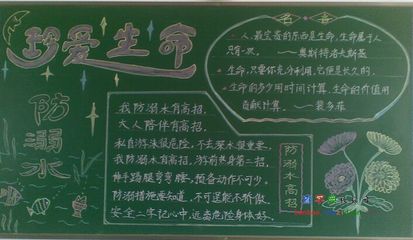 珍爱生命
名言
人，最宝贵的东西是生命，生命属于人
只有一次。——奥斯特洛夫斯基
生命，只要你充分利用，它便是长久的。
生命的多少用时间计算，生命的价值用
贡献计算。——裴多菲
防溺水
我防溺水有高招，
大人陪伴有高招，
私自游泳很危险，不去深水很重要，
我防溺水有高招，游前热身第二招，
伸手踢腿弯弯腰，预备动作不可少。
防溺措施要知道，不可逞能不骄傲，
安全二字记心中，远离危险身体好。
防溺水高招